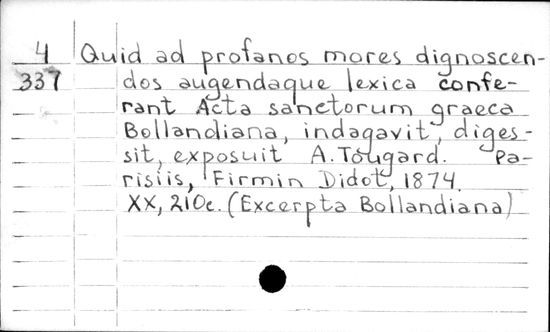 4 Quid ad profanos mores dignoscen-
337 dos augendaque lexica confe-
rant Acta sanctorum graeca
Bollandiana, indagavit, diges-
sit, exposuit A. Tougard. Pa-
risiis, Firmin Didot, 1874.
XX, 210c. (Excerpta Bollandiana)